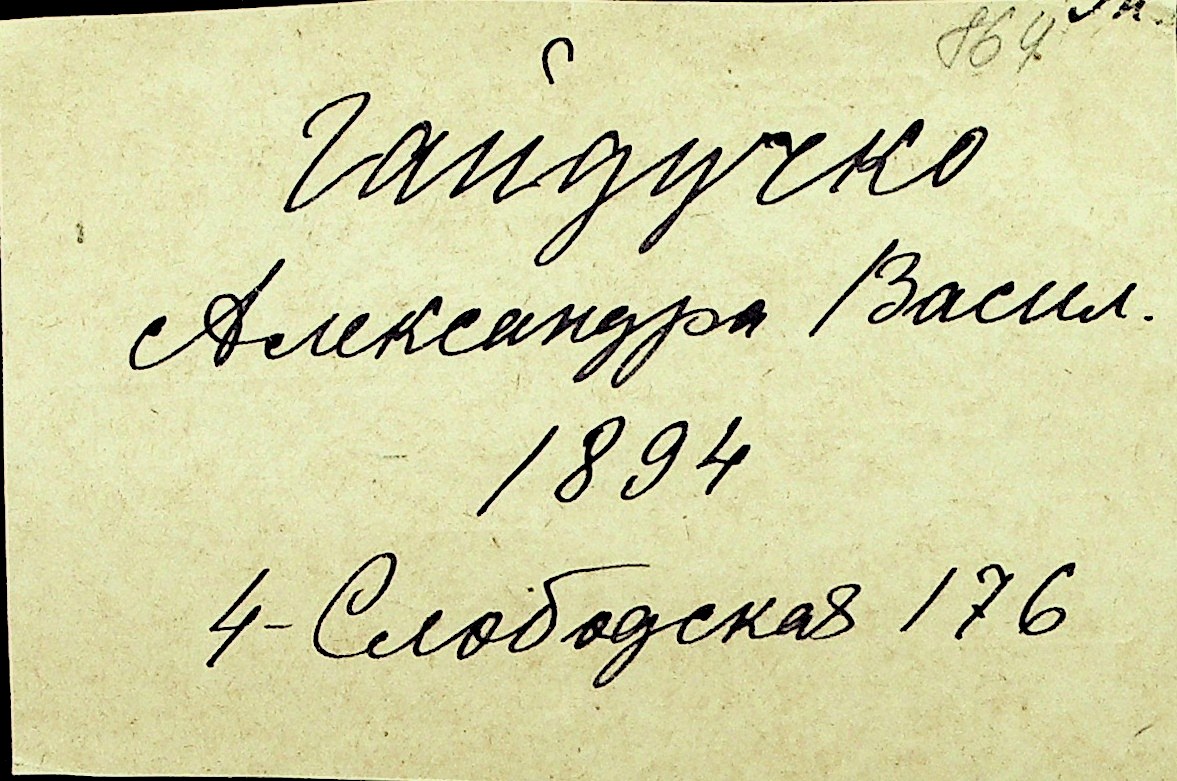 Гайдучко
Александра Васил.
1894
4-Слободская 176